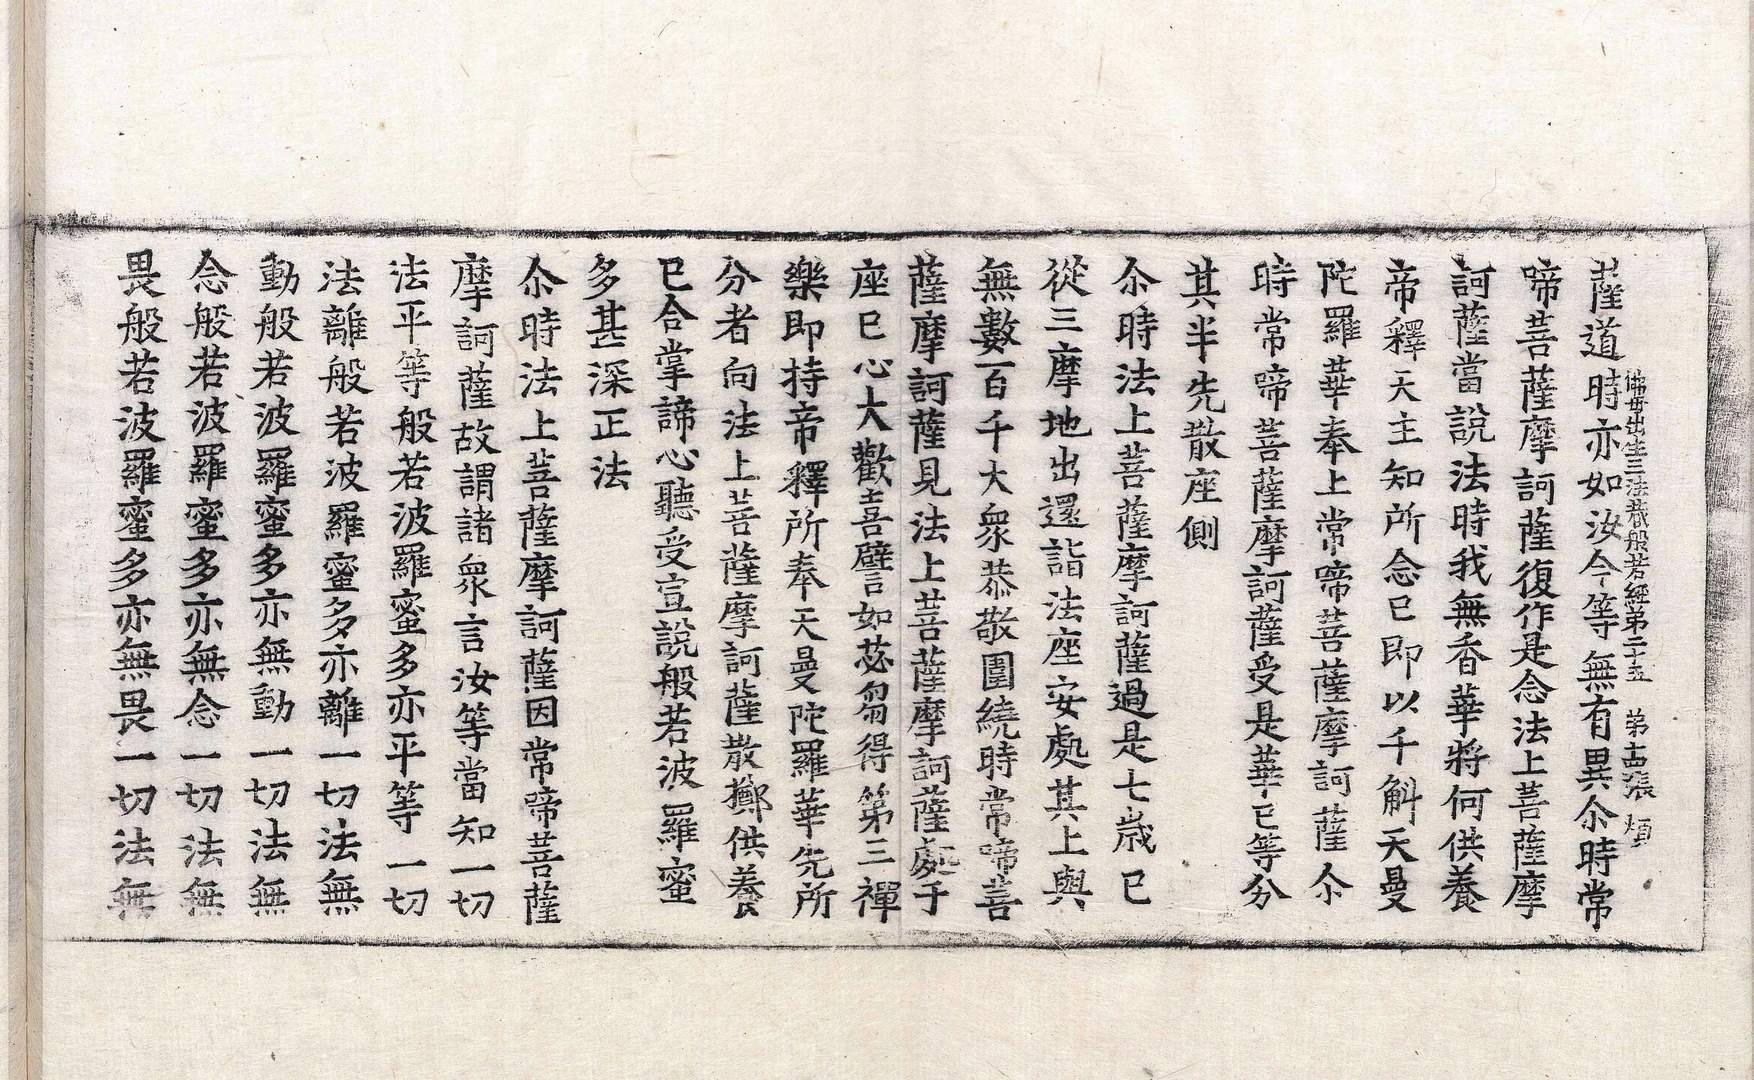 佛母出生三法藏般若經第二十五　第十四張　煩
薩道時亦如汝今等無有異尒時常
啼菩薩摩訶薩復作是念法上菩薩摩
訶薩當說法時我無香華將何供養
帝釋天主知所念已即以千斛天曼
陀羅華奉上常啼菩薩摩訶薩尒
時常啼菩薩摩訶薩受是華已等分
其半先散座側
尒時法上菩薩摩訶薩過是七歲已
從三摩地出還詣法座安處其上與
無數百千大衆恭敬圍繞時常啼菩
薩摩訶薩見法上菩薩摩訶薩處于
座已心大歡喜譬如苾芻得第三禪
樂即持帝釋所奉天曼陀羅華先所
分者向法上菩薩摩訶薩散擲供養
已合掌諦心聽受宣說般若波羅蜜
多甚深正法
尒時法上菩薩摩訶薩因常啼菩薩
摩訶薩故謂諸衆言汝等當知一切
法平等般若波羅蜜多亦平等一切
法離般若波羅蜜多亦離一切法無
動般若波羅蜜多亦無動一切法無
念般若波羅蜜多亦無念一切法無
畏般若波羅蜜多亦無畏一切法無